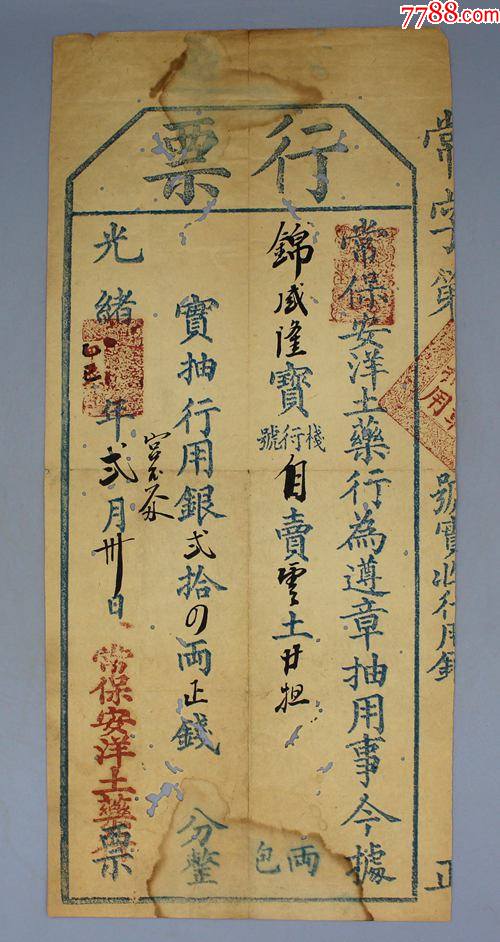 7788.com
行票
常字第 號實收行用銀 正
常保安洋土藥行為遵章抽用事今據
錦盛隆寶棧行號自賣雲土廿担 両包
實抽行用銀弍拾の両正錢 分整
光緒 年弍月卅日 常保安洋土藥票